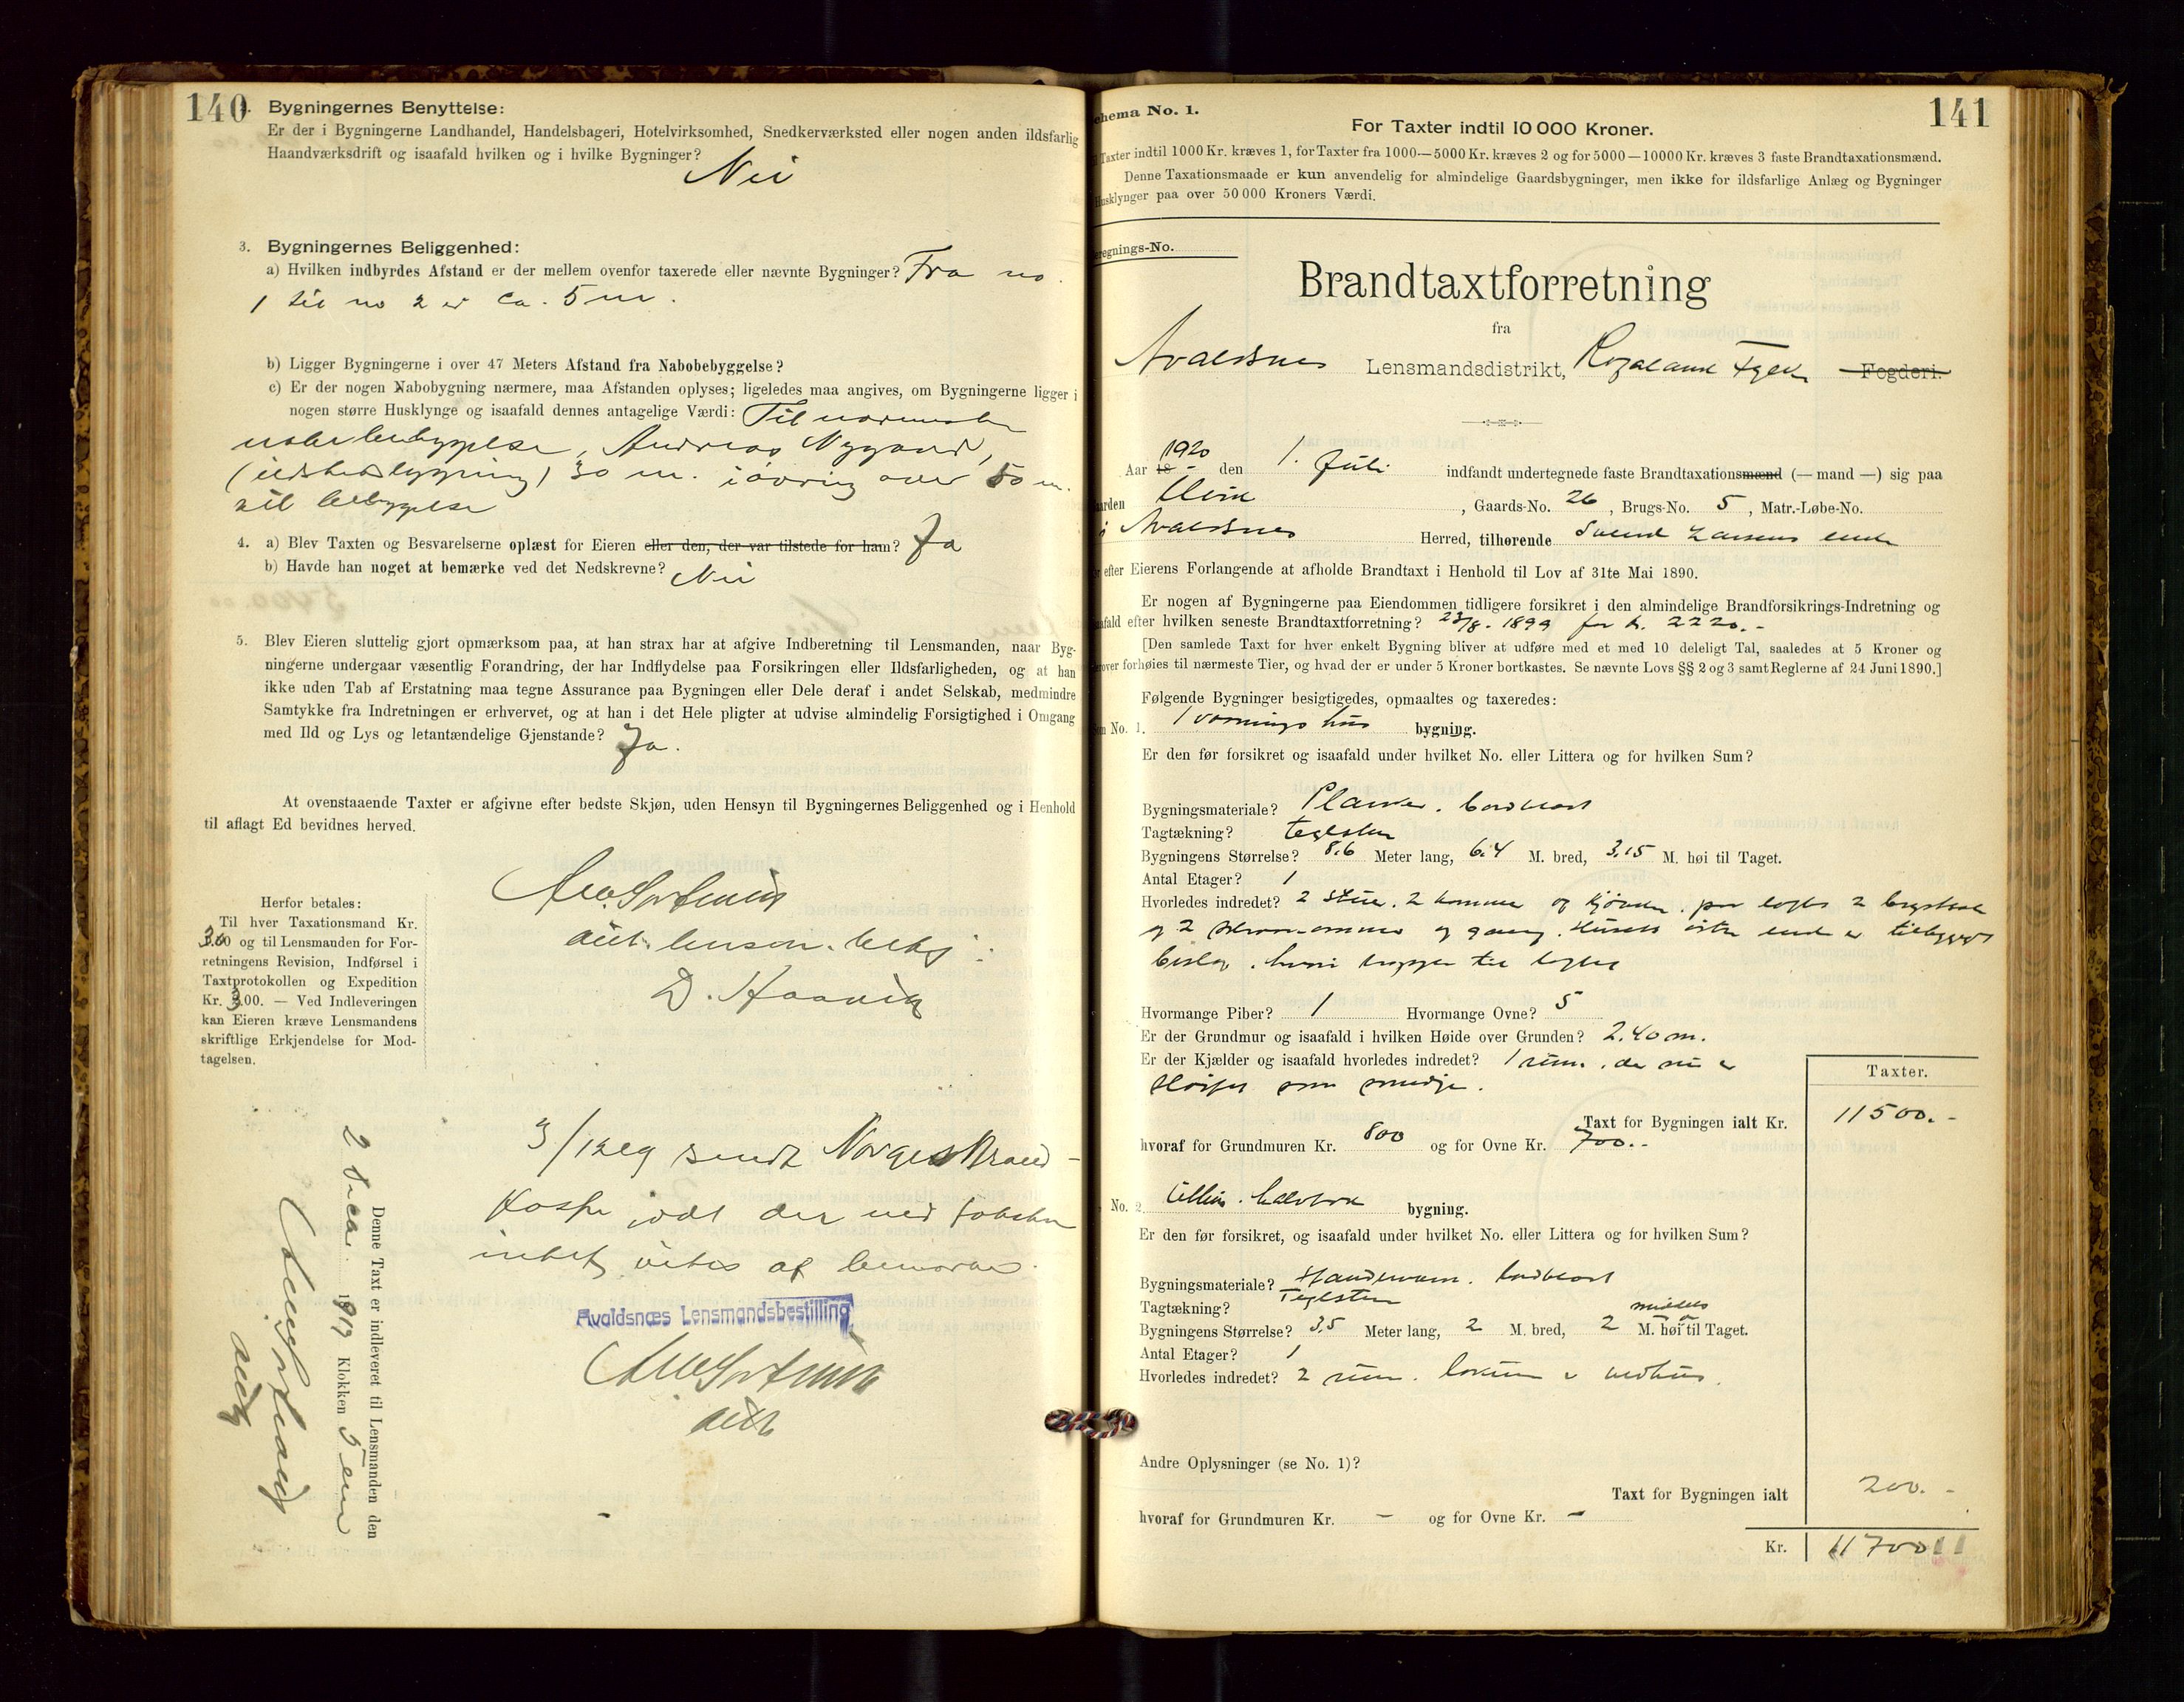 140
Bygningernes Benyttelse:
Er der i Bygningerne Landhandel, Handelsbageri, Hotelvirksomhed, Snedkerværksted eller nogen anden ildsfarlig
Haandværksdrift og isaafald hvilken og i hvilke Bygninger? Nei
3. Bygningernes Beliggenhed:
a) Hvilken indbyrdes Afstand er der mellem ovenfor taxerede eller nævnte Bygninger? Fra no.
1 til no 2 er ca. 5 m.
b) Ligger Bygningerne i over 47 Meters Afstand fra Nabobebyggelse?
c) Er der nogen Nabobygning nærmere, maa Afstanden oplyses; ligeledes maa angives, om Bygningerne ligger i
nogen større Husklynge og isaafald dennes antagelige Værdi: Til nærmeste
nabobebyggelse, Andreas Nygaard,
(ildstedsbygning) 30 m. i øvrig over 50 m.
til bebyggelse
4. a) Blev Taxten og Besvarelserne oplæst for Eieren eller den, der var tilstede for ham? Ja
b) Havde han noget at bemærke ved det Nedskrevne? Nei
5. Blev Eieren sluttelig gjort opmærksom paa, at han strax har at afgive Indberetning til Lensmanden, naar Byg-
ningerne undergaar væsentlig Forandring, der har Indflydelse paa Forsikringen eller Ildsfarligheden, og at han
ikke uden Tab af Erstatning maa tegne Assurance paa Bygningen eller Dele deraf i andet Selskab, medmindre
Samtykke fra Indretningen er erhvervet, og at han i det Hele pligter at udvise almindelig Forsigtighed i Omgang
med Ild og Lys og letantændelige Gjenstande? Ja.
At ovenstaaende Taxter er afgivne efter bedste Skjøn, uden Hensyn til Bygningernes Beliggenhed og i Henhold
til aflagt Ed bevidnes herved.
D. Haavig
Herfor betales:
Til hver Taxationsmand Kr.
3.00 og til Lensmanden for For-
retningens Revision, Indførsel i
Taxtprotokollen og Expedition
Kr. 3.00. — Ved Indleveringen
kan Eieren kræve Lensmandens
skriftlige Erkjendelse for Mod-
tagelsen.
3/12 19 sendt Norges Brand-
kasse idet der ved
intet vides at bemærke.
Avaldsnæs Lensmandsbestilling
Denne Taxt er indleveret til Lensmanden den
2 1919 Klokken 5 em
141
Schema No. 1.
For Taxter indtil 10 000 Kroner.
Taxter indtil 1000 Kr. kræves 1, for Taxter fra 1000—5000 Kr. kræves 2 og for 5000—10000 Kr. kræves 3 faste Brandtaxationsmænd.
Denne Taxationsmaade er kun anvendelig for almindelige Gaardsbygninger, men ikke for ildsfarlige Anlæg og Bygninger
Husklynger paa over 50 000 Kroners Værdi.
Beregnings-No.
Brandtaxtforretning
fra
Avaldsnes Lensmandsdistrikt, Rogaland Fylke Fogderi.
Aar 18 1920 den 1. Juli indfandt undertegnede faste Brandtaxationsmænd (— mand —) sig paa
Gaarden , Gaards-No. 26, Brugs-No. 5, Matr.-Løbe-No.
i Avaldsnes Herred, tilhørende Svend Larsens enke
efter Eierens Forlangende at afholde Brandtaxt i Henhold til Lov af 31te Mai 1890.
Er nogen af Bygningerne paa Eiendommen tidligere forsikret i den almindelige Brandforsikrings-Indretning og
isaafald efter hvilken seneste Brandtaxtforretning? 23/8. 1899 for kr. 2220.-
[Den samlede Taxt for hver enkelt Bygning bliver at udføre med et med 10 deleligt Tal, saaledes at 5 Kroner og
derover forhøies til nærmeste Tier, og hvad der er under 5 Kroner bortkastes. Se nævnte Lovs §§ 2 og 3 samt Reglerne af 24 Juni 1890.]
Følgende Bygninger besigtigedes, opmaaltes og taxeredes:
Som No. 1. Vaaningshus bygning.
Er den før forsikret og isaafald under hvilket No. eller Littera og for hvilken Sum?
Bygningsmateriale? Planker. bordklædt
Tagtækning? teglsten
Bygningens Størrelse? 8.6 Meter lang, 6.4 M. bred, 3.15 M. høi til Taget.
Antal Etager? 1
Hvorledes indredet? 2 stuer. 2 kammer og kjøkken. paa loftet 2
og 2 og gang. Husets østre ende er tilbygget
bislag. hvori trappe til loftet
Hvormange Piber? 1 Hvormange Ovne? 5
Er der Grundmur og isaafald i hvilken Høide over Grunden? 2.40 m.
Er der Kjælder og isaafald hvorledes indredet? 1 rum. der nu er
sløifet som smedje.
Taxter.
Taxt for Bygningen ialt Kr. 11500.-
hvoraf for Grundmuren Kr. 800 og for Ovne Kr. 700.-
No. 2 bygning.
Er den før forsikret, og isaafald under hvilket No. eller Littera og for hvilken Sum?
Bygningsmateriale? bordklædt
Tagtækning? Teglsten
Bygningens Størrelse? 3,5 Meter lang, 2 M. bred, 2 M. middels høi til Taget.
Antal Etager? 1
Hvorledes indredet? 2 rum. lokum & vedhus.
Andre Oplysninger (se No. 1)?
Taxt for Bygningen ialt 200.-
hvoraf for Grundmuren Kr. - og for Ovne Kr. -
Kr. 11700